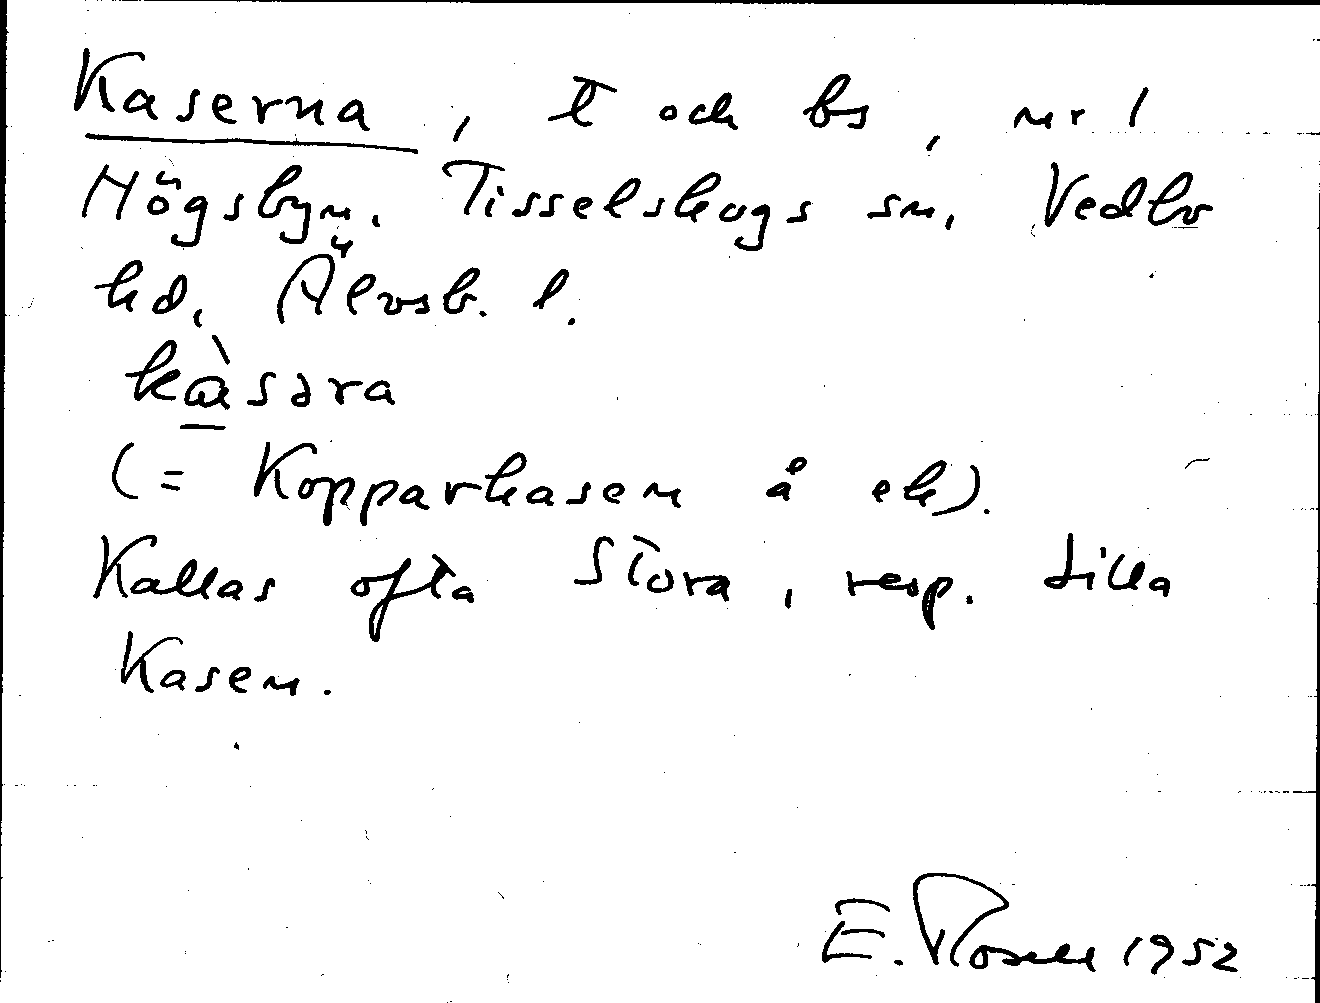 Kaserna, t och bs, nr 1
Högsbyn. Tisselskogs sn, Vedbo
hd, Älvsb. l.
kàsəra
(= Kopparkasen å ek).
Kallas ofta Stora, resp. Lilla
Kasen.
E. Rosell 1952